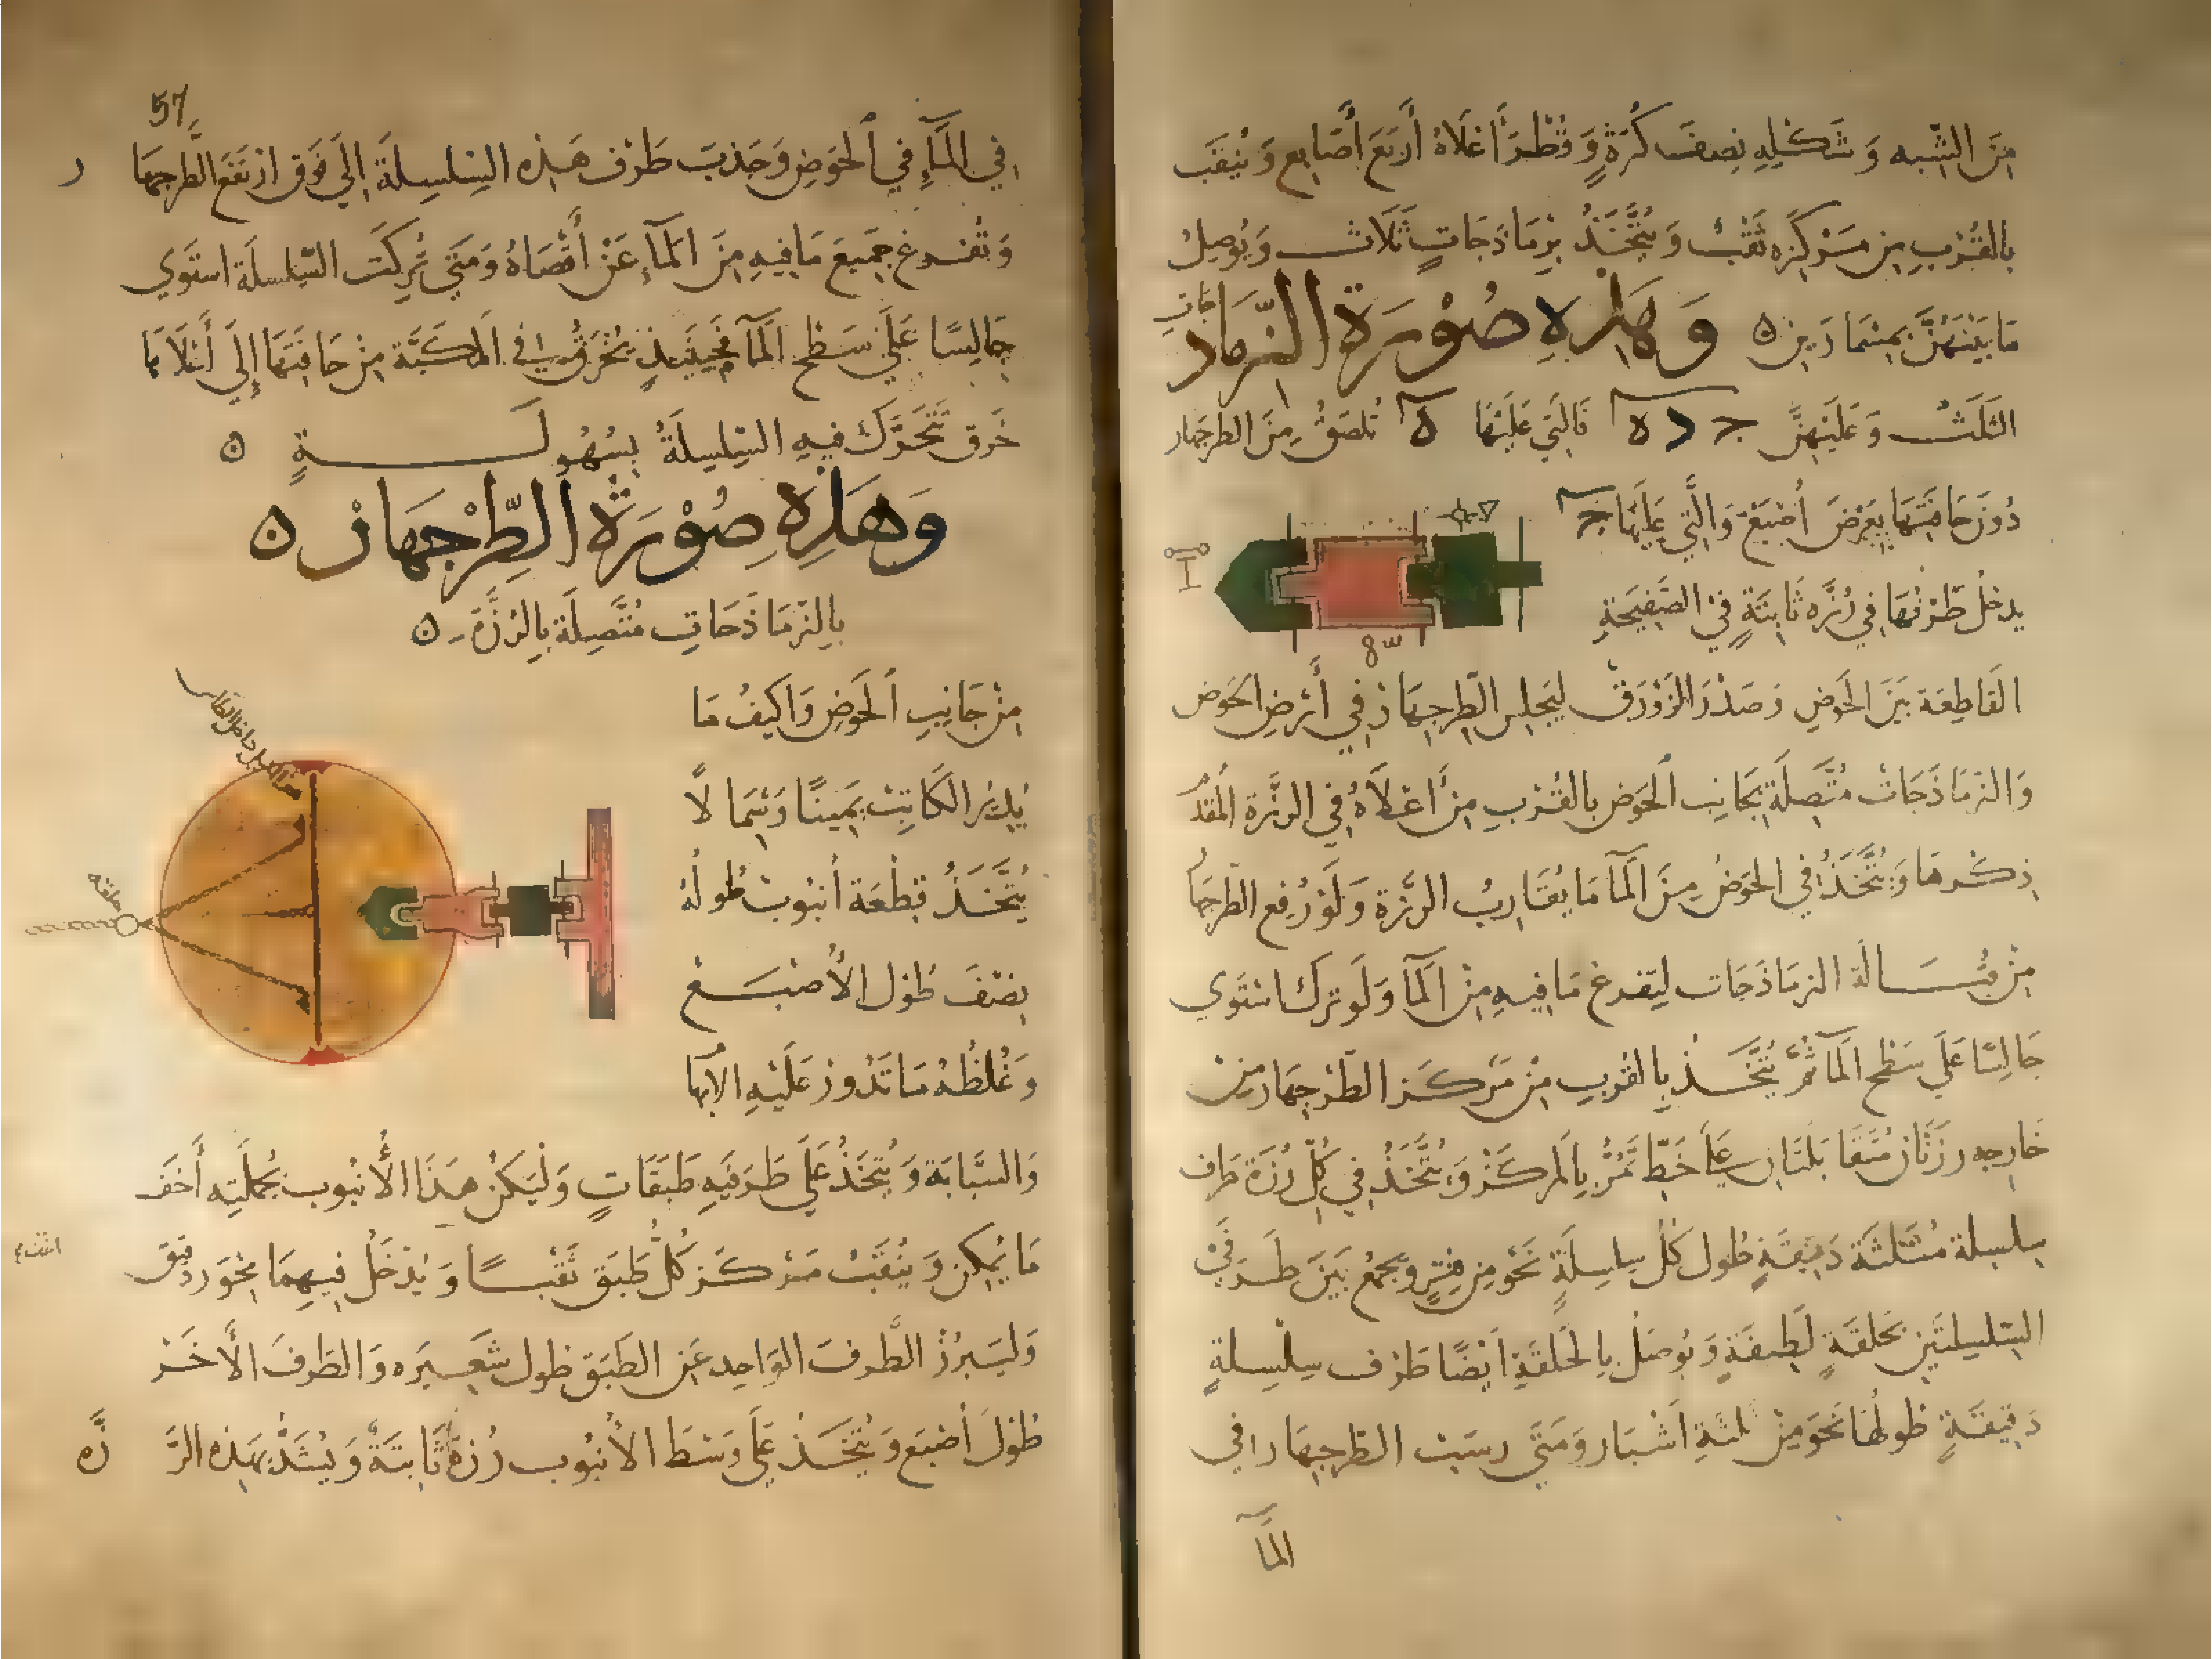 من الشبه وَشَكْلِهِ نِصف كُرَةٍ وَقُطْرُ أَعْلَاهُ أَرْبَعَ أَصَابِع وَيُثقَب
بِالقُرْبِ مِن مَرْكَزِه ثَقْبٌ وَيُتَّخَذُ نِرمَاذَجَاتٍ ثَلَاث وَيُوصِلُ
مَا بَيْنَهُنَّ بِمِسْمَارَين ه وَهَذِهِ صُوْرَةُ النِّرمَاذ
جَاتِ
الثَلَثْ وَعَلَيْهِنَّ ج د ه فَالَّتي عَلَيْهَا ه تُلصَقُ مِنَ الطرجهار
دُونَ حَافَتِهَا بِعَرْضَ أُصْبَعْ وَالَّتِي عَلَيْهَا ج
يدخُل طَرْفُهَا فِي رُزَّه ثَابِتَةٍ فِيْ الصَّفِيحَةِ
القَاطِعَة بَيْنَ الحَوضِ وَصَدْرَ الزَّوْرَقْ لِيَجلِس الطرجِهَار فِي أَرضِ الحَوض
وَالنرمَاذَجَاتْ مُتَّصِلَة بِجَانِب الحَوض بالقُرْبِ مِنْ أَعْلَاهُ فِي الرزَّة المُقدَّمُ
ذِكْرهَا وَيُتَّخَذُ في الحَوضُ مِنَ المَآ مَا يُقَارِبُ الرزَّة وَلَوْ رُفِع الطَّرْجَهَا
مِنْ قُبَالَة النرمَاذَجَات لِيَفرغ مَا فِيهِ مِنْ المَآ وَلَو ترك استَوي
جَالِسًا عَلَي سَطْح المَآ ثُمَّ يُتَّخَذُ بِالقُربِ مِنْ مَرْكَز الطَرْجِهَار مِنْ
خَارِجه رزتَانِ مُتَقَابَلتَانِ عَلَي خَطٍّ تَمُرُّ بِالمركَزْ وَيُتَّخَذُ فِي كُلِّ رُزَة طَرف
سِلسِلة مُثَلثَة دَقِيقَةٍ طُول كُلُّ سِلسِلَةٍ نَحْو مِن فِترٍ وَيجمَعُ بَيْنَ طَرَفَيْ
السِّلسِلتَيْنِ بَحلقَةٍ لَطِيفَةٍ وَيُوصَلُ بِالحَلقَةِ أَيْضًا طَرْف سِلْسِلةٍ
دَقِيقَةٍ طُولهَا نَحْوَ مِنْ ثلثةِ أَشْبَار وَمَتَي رسَبْ الطرْجِهَار في
المَآ
57
فِي المَآءِ فِي الحَوضِ وَجَذبَ طَرْف هَذِهِ السِلسِلَة إِلَي فَوق ارْتَفَعَ الطَّرجهَا
ر
وَتْفرغ جَمِيعَ مَا فِيهِ مِنَ المَآءِ عَنْ أَقْصَاهُ وَمَتَي تُرِكَت السِّلسلَة استَوي
جَالِسًا عَلَيَ سَطْح المَآ فَحِينَئِذٍ يُخْرَقُ فِي المَكَبَّة مِنْ حَافَتهَا إِلَي أَعْلَاهَا
خَرق تَتَحَرَّك فِيهِ السِّلسِلَةُ بِسُهُولَةٍ ه
وَهَذِهِ صُوْرَةُ الطِّرْجهَارْ ه
بِالنْرمَاذَجَاتِ مُتَّصِلَة بِالرُزَّة ه
مِنْ جَانِبِ الحَوضِ وَاكَيفُ مَا
يُدِيرُ الكَاتِبْ يَمِينًا وَشِمَالًا
يُتَّخَذُ قِطْعَة أنبُوبْ طُولُهُ
نِصْفَ طُول الأُصْبَع
وَغُلظُهُ مَا تَدُورْ عَلَيْهِ الابها
وَالسَّبَابَة وَيُتخَذُ عَلَي طَرَفَيهِ طَبَقَاتٍ وَلْيَكُنْ هَذَا الأُنبُوب بجُملَتِه أَخَف
مَا يُمكِن وَيُثقَبْ مَرْكَز كُلُّ طَبَق ثَقْبًا وَيُدْخَلُ فِيهِمَا مِحْوَر دَقيق
وَليَبرُزْ الطَّرفَ الوَاحِد عَن الطَبَق طول شَعِيرَه وَالطرفَ الأَخَرْ
طُولَ أُصْبَع وَيُتَّخَذ عَلَي وَسْط الأُنبُوب رُزةً ثَابِتَةً وَيُشَدُّ بِهَذِهِ الرَّزَّه
هذا الميل داخل الكاس
حلقه